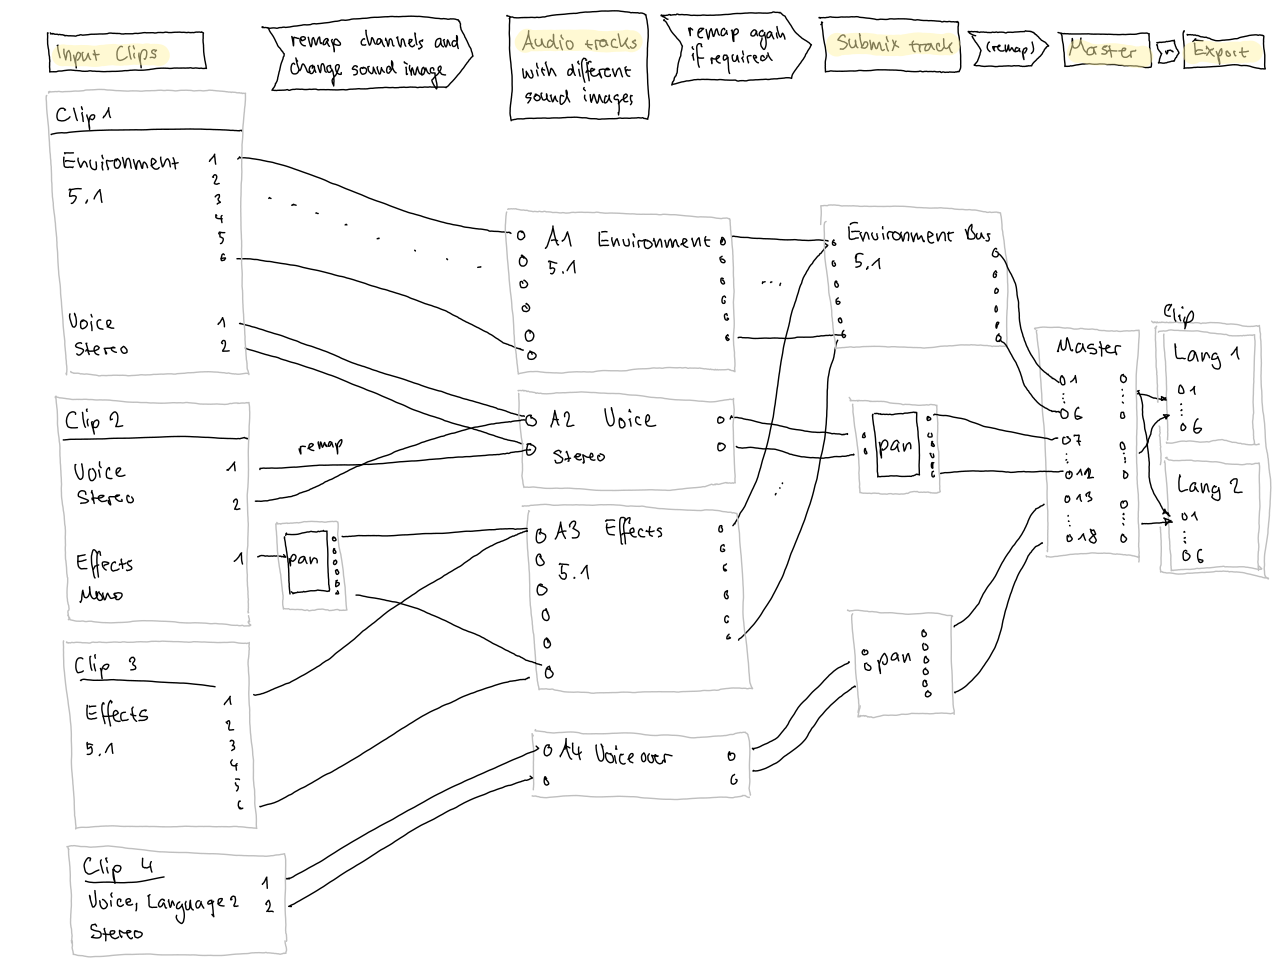 Input Clips
remap channels and
change sound image
Audio tracks
with different
sound images
remap again
if required
Submix track
(remap)
Master
r
Export
Clip 1
Environment 1
2
5.1 3
4
5
6
Voice 1
Stereo 2
Clip 2
Voice 1
Stereo 2
Effects 1
Mono
remap
pan
Clip 3
Effects 1
2
5.1 3
4
5
6
Clip 4
Voice, Language 2 1
2
Stereo
A1 Environment
5.1
...
A2 Voice
Stereo
A3 Effects
5.1
...
A4 Voice over
Environment Bus
5.1
pan
pan
Master
1
6
7
12
13
18
Clip
Lang 1
1
6
Lang 2
1
6